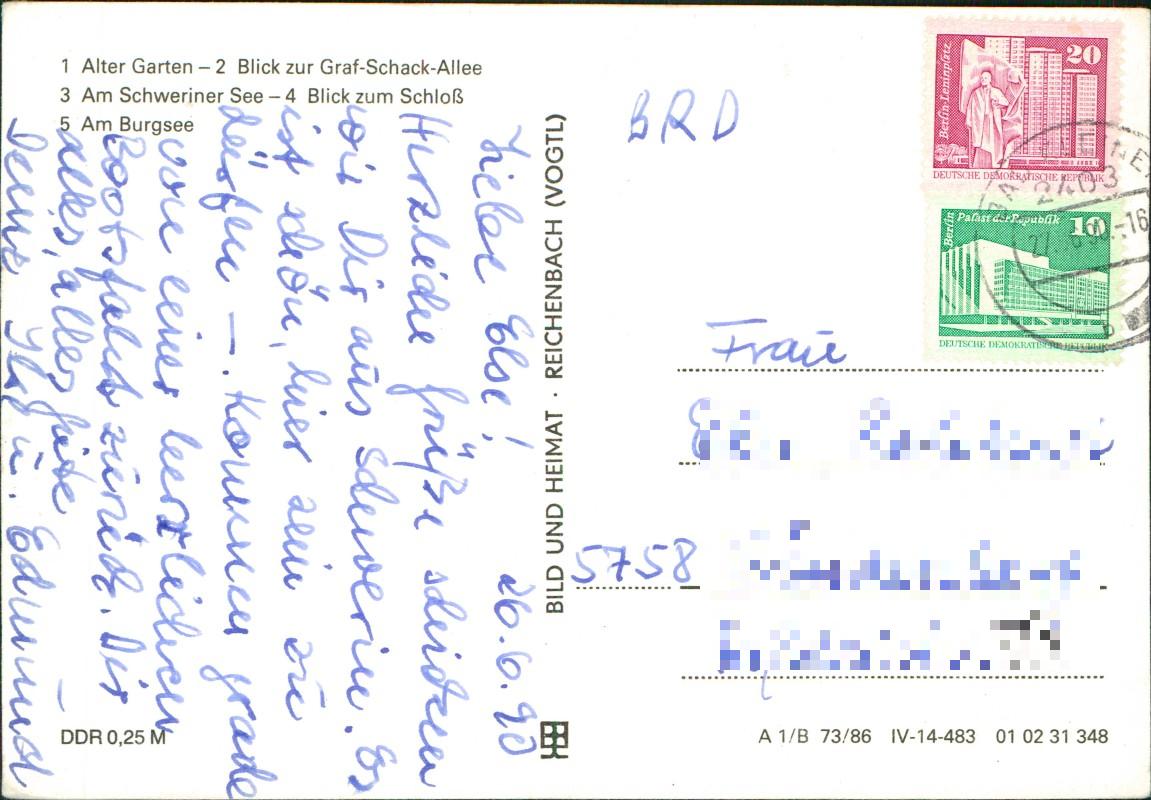 1 Alter Garten – 2 Blick zur Graf-Schack-Allee
3 Am Schweriner See – 4 Blick zum Schloß
5 Am Burgsee
Liebe Else! 26.6.90
Herzliche Grüße senden
wir Dir aus Schwerin. Es
ist schön, hier sein zu
dürfen –. Kommen grade
von einer herrlichen
Bootsfahrt zurück. Dir
alles, alles gute –
Deine u. Edmund
BILD UND HEIMAT · REICHENBACH (VOGTL)
BRD
20
Berlin-Leninplatz
DEUTSCHE DEMOKRATISCHE REPUBLIK
2403
10
Berlin Palast der Republik
DEUTSCHE DEMOKRATISCHE REPUBLIK
Frau
5758
DDR 0,25 M
A 1/B 73/86 IV-14-483 01 02 31 348